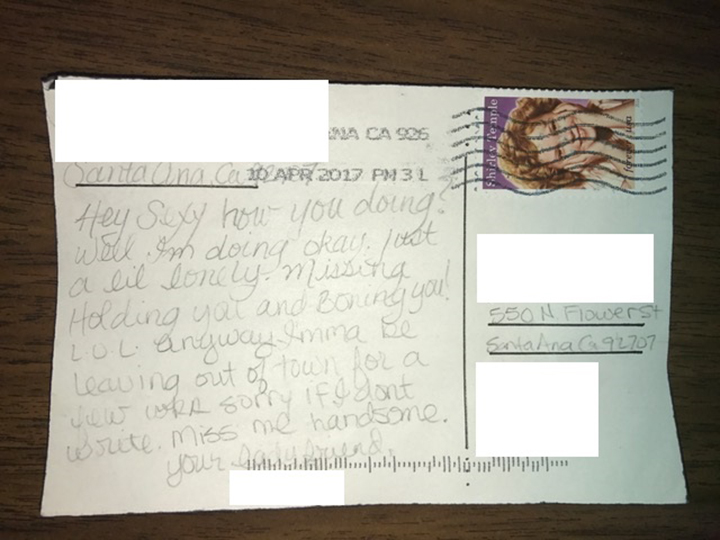 ANA CA 926
Santa Ana, Ca
10 APR 2017 PM 3 L
Shirley Temple
Hey Sexy how you doing?
Well. Im doing okay. Just
a lil lonely. Missing
Holding you and Boning you!
L.O.L. anyway Imma be
Leaving out of town for a
few wks sorry if I dont
write. Miss me handsome.
your ladyfriend.
550 N. Flower St
Santa Ana Ca 92707